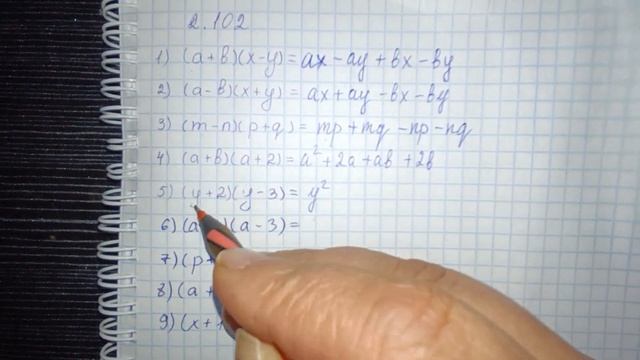 2.102
1) (a+b)(x-y)= ax - ay + bx - by
2) (a-b)(x+y)= ax + ay - bx - by
3) (m-n)(p+q)= mp + mq - np - nq
4) (a+b)(a+2)= a² + 2a + ab + 2b
5) (y+2)(y-3)= y²
6) (a )(a-3)=
7) (p+
8) (a+
9) (x+